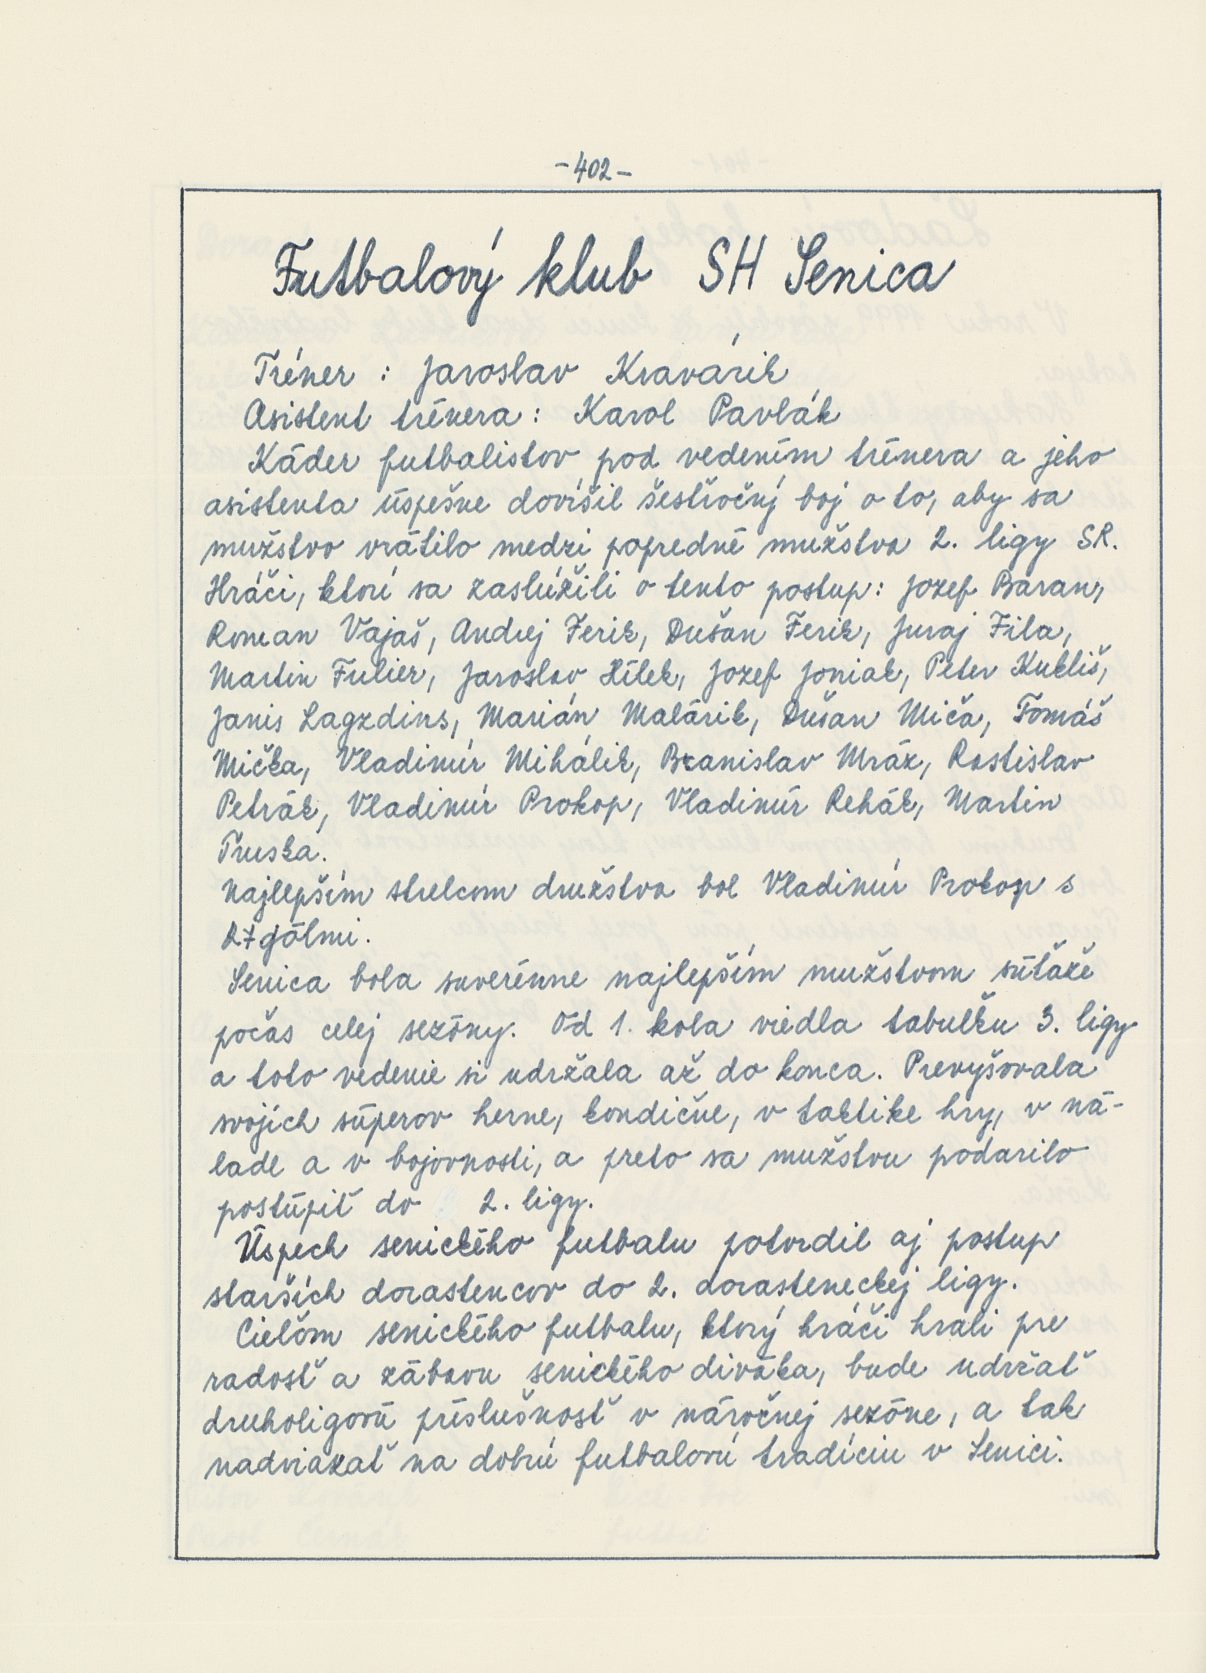 -402-
Futbalový klub SH Senica
Tréner : Jaroslav Kravárik
Asistent trénera : Karol Pavlák
Káder futbalistov pod vedením trénera a jeho
asistenta úspešne dovŕšil šesťročný boj o to, aby sa
mužstvo vrátilo medzi popredné mužstvá 2. ligy SR.
Hráči, ktorí sa zaslúžili o tento postup: Jozef Baran,
Roman Vajaš, Andrej Ferik, Dušan Ferik, Juraj Fila,
Martin Fulier, Jaroslav Hílek, Jozef Joniak, Peter Kukliš,
Janis Lagzdins, Marián Malárik, Dušan Miča, Tomáš
Mička, Vladimír Mihálik, Branislav Mráz, Rastislav
Petrák, Vladimír Prokop, Vladimír Rehák, Martin
Truska.
Najlepším strelcom družstva bol Vladimír Prokop s
27 gólmi.
Senica bola suverénne najlepším mužstvom súťaže
počas celej sezóny. Od 1. kola viedla tabuľku 3. ligy
a toto vedenie si udržala až do konca. Prevyšovala
svojich súperov herne, kondične, v taktike hry, v ná-
lade a v bojovnosti, a preto sa mužstvu podarilo
postúpiť do 2. ligy.
Úspech senického futbalu potvrdil aj postup
starších dorastencov do 2. dorasteneckej ligy.
Cieľom senického futbalu, ktorý hráči hrali pre
radosť a zábavu senického diváka, bude udržať
druholigovú príslušnosť v náročnej sezóne, a tak
nadviazať na dobrú futbalovú tradíciu v Senici.